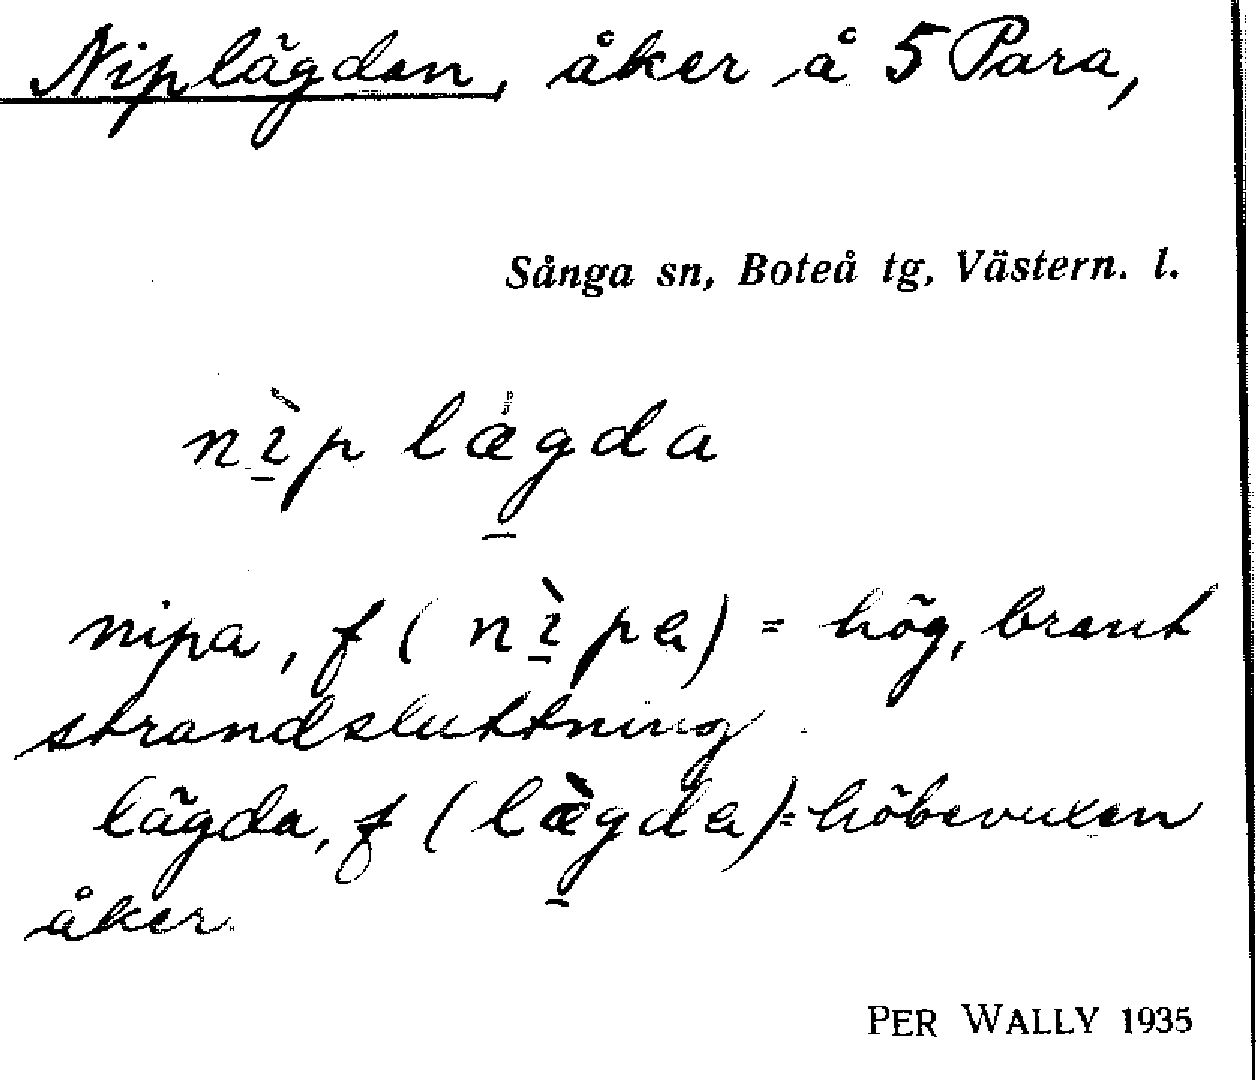 Niplägdan, åker å 5 Para,
Sånga sn, Boteå tg, Västern. l.
nı̱̀p lægda
nipa, f (nı̱̀pa) = hög, brant
strandsluttning.
lägda, f (læ̀gda) = höbevuxen
åker.
PER WALLY 1935